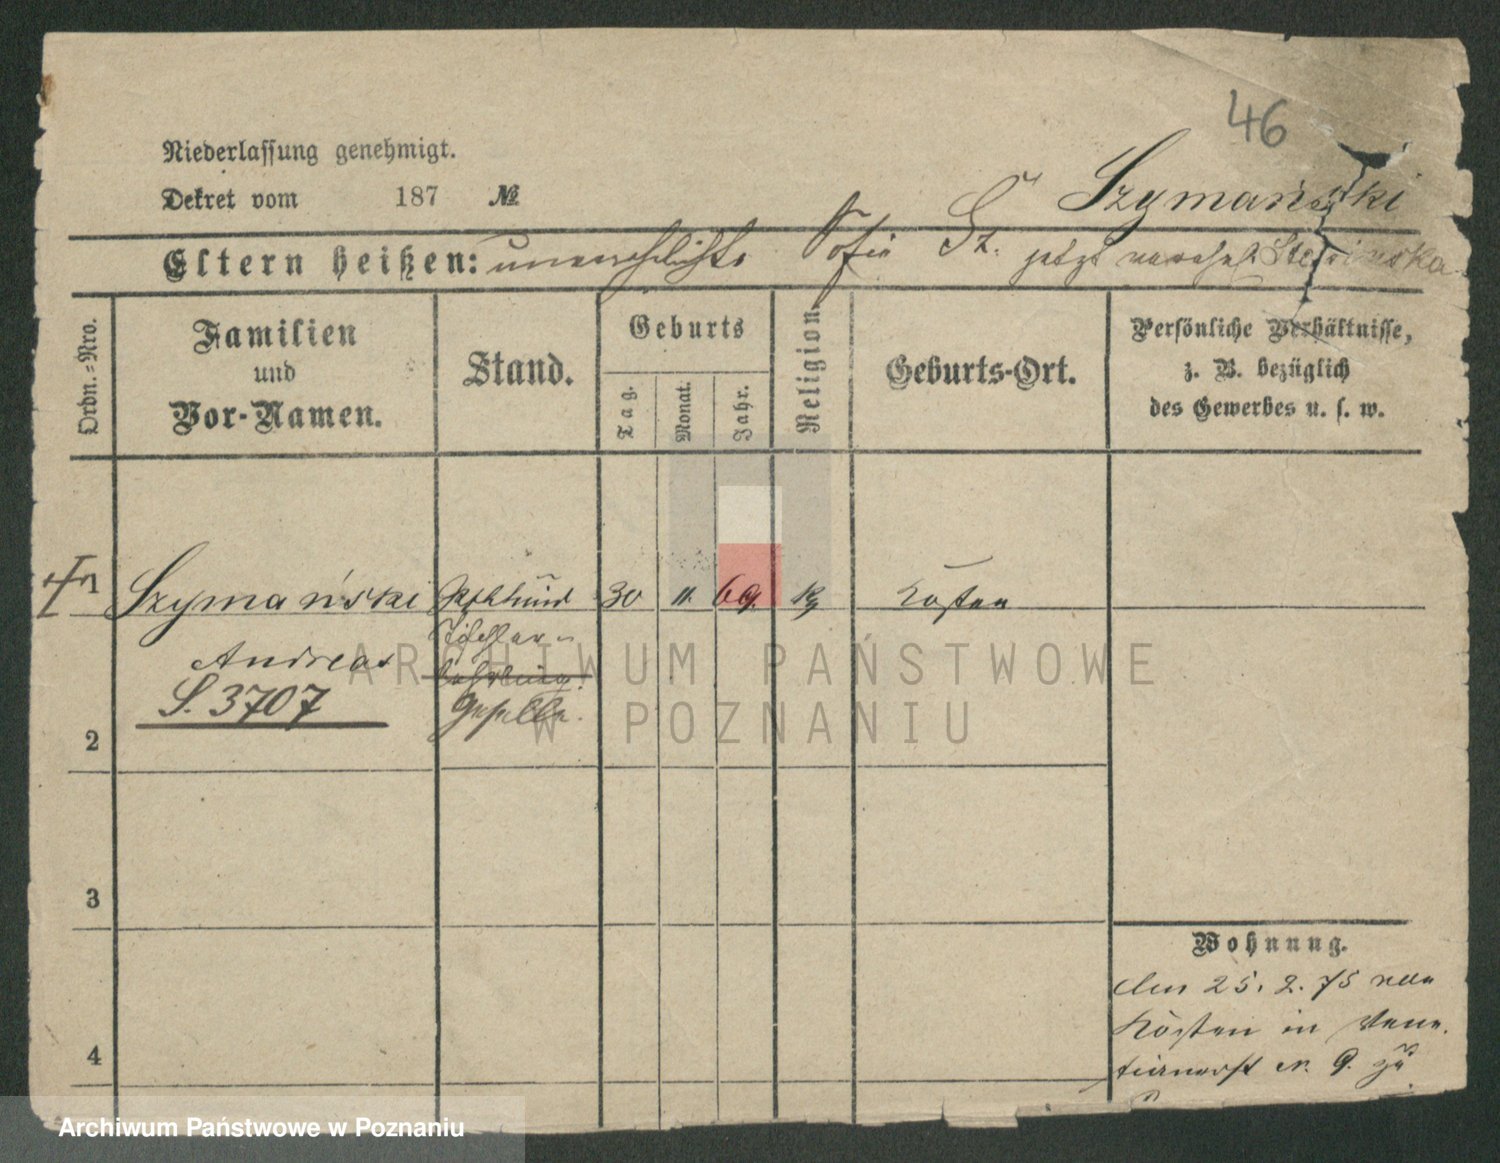 46
Niederlassung genehmigt.
Dekret vom 187 №
Szymański
Eltern heißen: unverehelichte Sofie Sz. jetzt verehel.
Ordn.=Nro.
Familien
und
Vor-Namen.
Stand.
Geburts
Tag.
Monat.
Jahr.
Religion.
Geburts-Ort.
Persönliche Verhältnisse,
z. B. bezüglich
des Gewerbes u. s. w.
1 Szymański 30 11. 69. Kosten
Andreas
Tischler-
S. 3707
lehrling
Geselle.
2
3
4
Wohnung.
den 25. 2. 75 von
Kosten in
N. 9. zu
ARCHIWUM PAŃSTWOWE
W POZNANIU
Archiwum Państwowe w Poznaniu